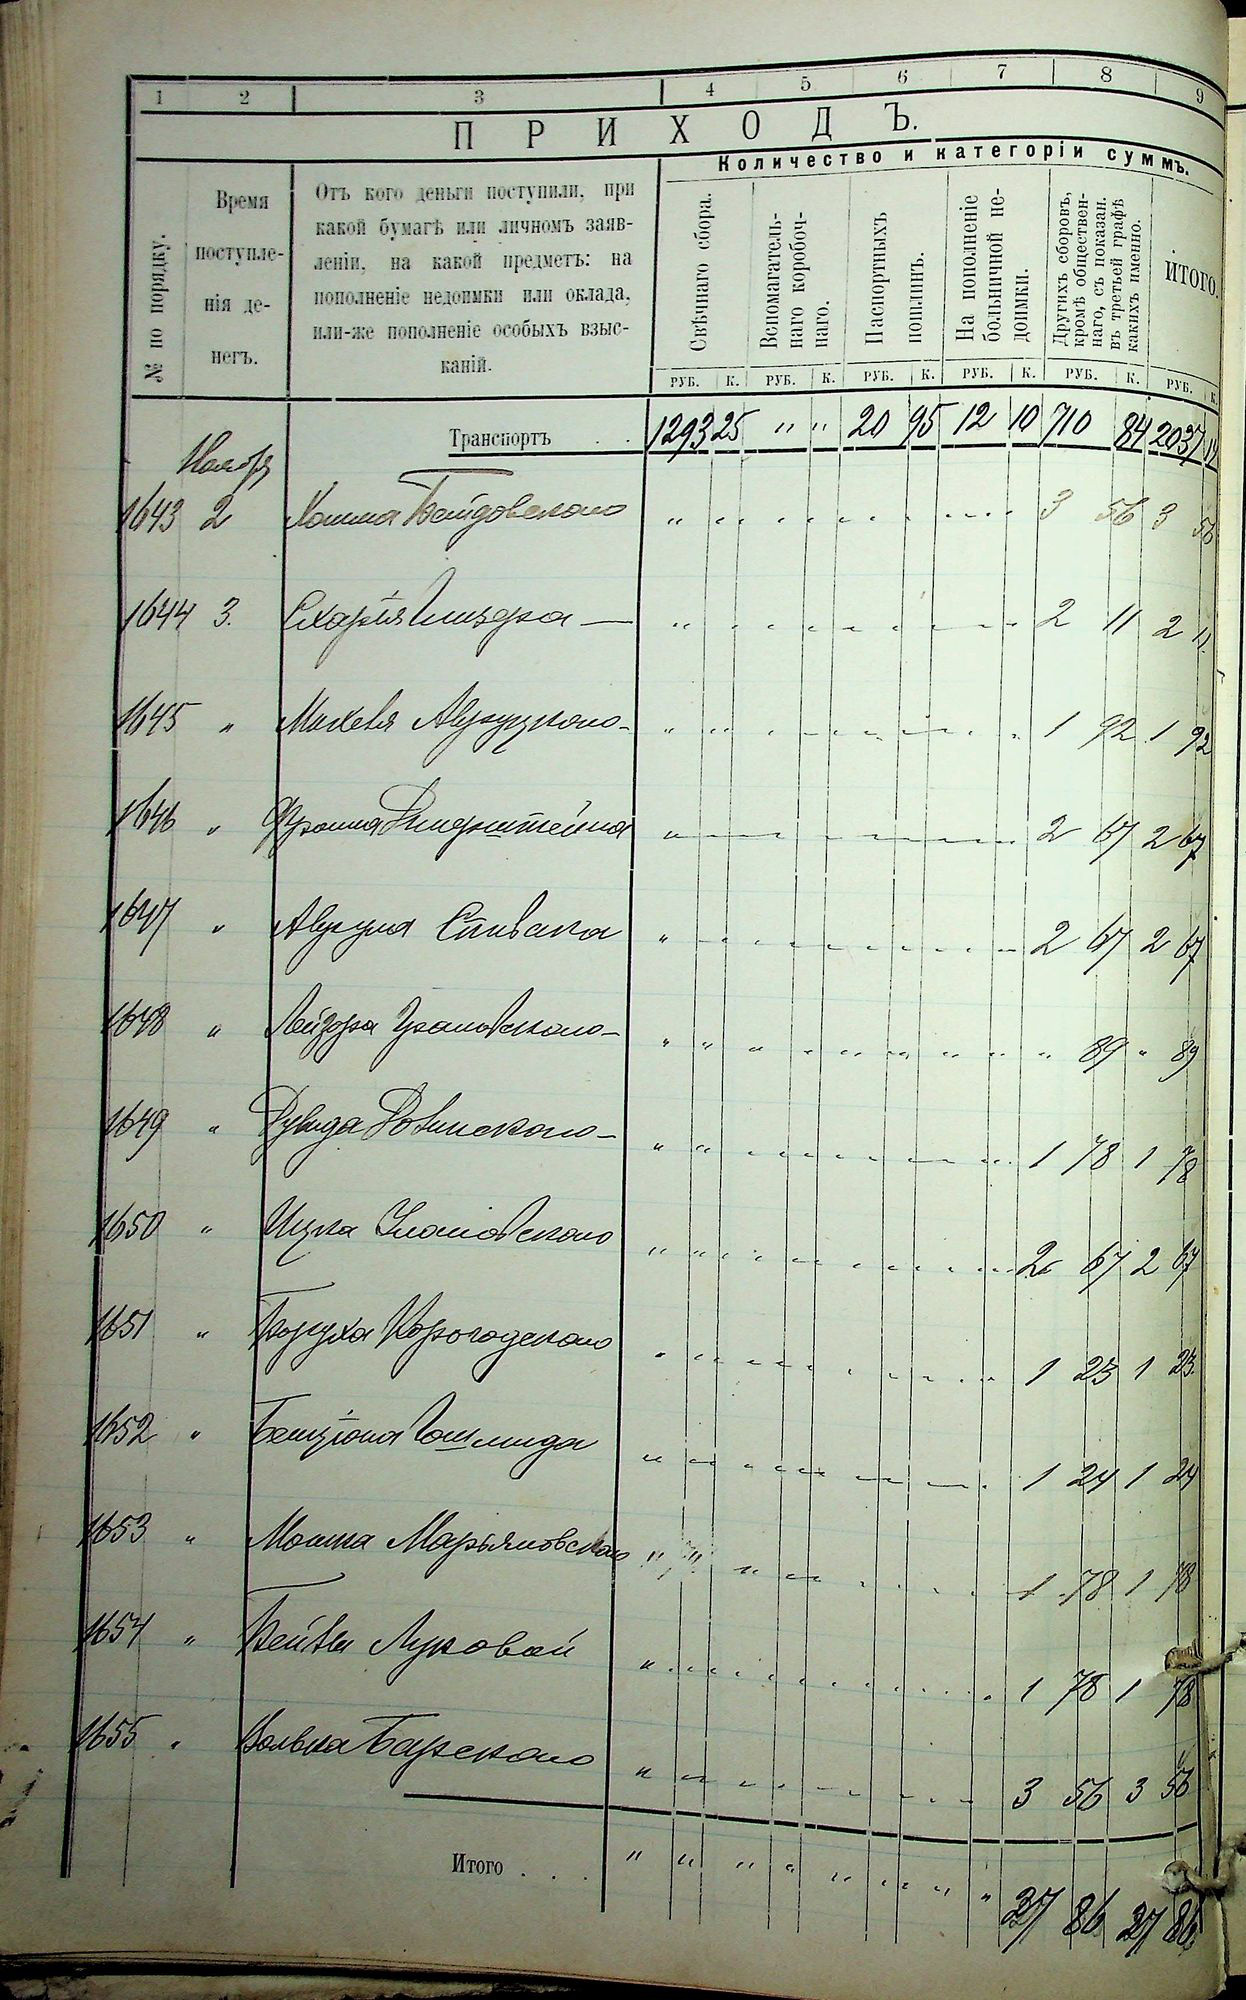 1 2 3 4 5 6 7 8 9
ПРИХОДЪ.
Количество и категоріи суммъ.
№ по порядку.
Время
поступле-
нія де-
негъ.
Отъ кого деньги поступили, при
какой бумагѣ или личномъ заяв-
леніи, на какой предметъ: на
пополненіе недоимки или оклада,
или-же пополненіе особыхъ взыс-
каній.
Свѣчнаго сбора.
Вспомагатель-
наго коробоч-
наго.
Паспортныхъ
пошлинъ.
На пополненіе
больничной не-
доимки.
Другихъ сборовъ,
кромѣ обществен-
наго, съ показан.
въ третьей графѣ
какихъ именно.
ИТОГО.
РУБ. К. РУБ. К. РУБ. К. РУБ. К. РУБ. К. РУБ. К.
Транспортъ . . 1293 25 " " 20 95 12 10 710 84 2037 14
Ноябр
1643 2 3 56 3 56
1644 3. 2 11 2 11
1645 " 1 92 1 92
1646 " 2 67 2 67
1647 " Спивака 2 67 2 67
1648 " Лейзора " 89 " 89
1649 " Дувида Ровинского 1 78 1 78
1650 " Ицка 2 67 2 67
1651 " Боруха Корогодского 1 23 1 23
1652 " Бенціона 1 24 1 24
1653 " Мошка Марьяновского 1 78 1 78
1654 " Бейвы Луковой 1 78 1 78
1655 " Волька Барского 3 56 3 56
Итого . . . 27 86 27 86